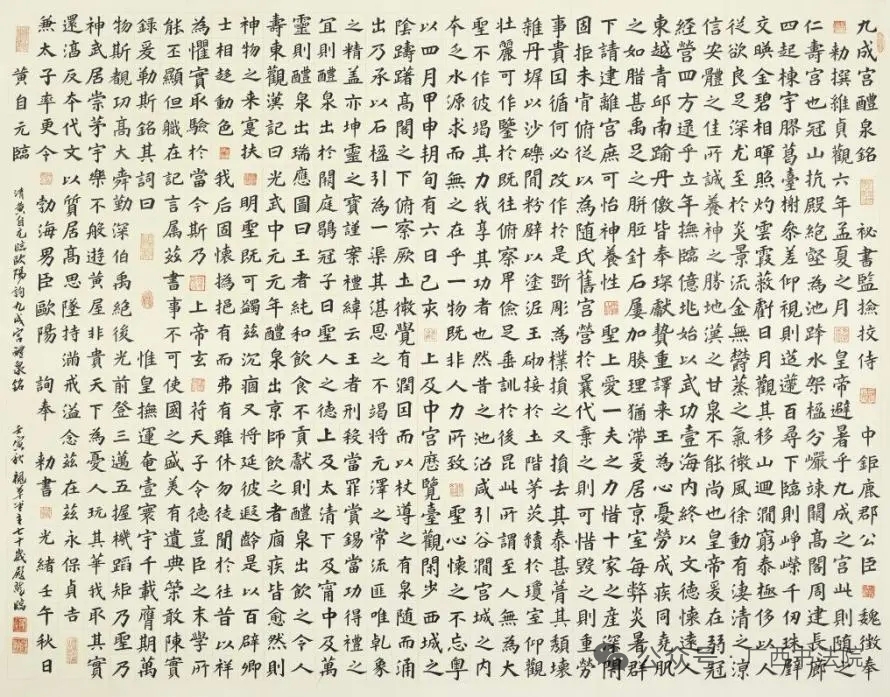 九成宫醴泉銘 祕書監撿挍侍 中鉅鹿郡公臣 魏徵奉
勅撰維貞觀六年孟夏之月 皇帝避暑乎九成之宫此則随之
仁壽宫也冠山抗殿絕壑為池跨水架楹分巖竦闕高閣周建長廊
四起棟宇膠葛臺榭參差仰視則迢遰百尋下臨則崢嶸千仞珠璧
交暎金碧相暉照灼雲霞蔽虧日月觀其移山迴澗窮泰極侈以人
從欲良足深尤至於炎景流金無鬱蒸之氣微風徐動有淒清之凉
信安體之佳所誠養神之勝地漢之甘泉不能尚也皇帝爰在弱冠
經營四方逮乎立年撫臨億兆始以武功壹海内終以文德懷遠人
東越青邱南踰丹儌皆奉琛獻贄重譯来王為心憂勞成疾同堯肌
之如腊甚禹足之胼胝針石屢加腠理猶滯爰居京室每弊炎暑群
下請建離宫庶可怡神養性 聖上愛一夫之力惜十家之産深閇
固拒未肯俯從以為随氏舊宫營於曩代棄之則可惜毁之則重勞
事貴因循何必改作於是斲彫為樸損之又損去其泰甚葺其頹壊
雜丹墀以沙礫間粉壁以塗泥玉砌接於土階茅茨續於瓊室仰觀
壮麗可作鑒於既往俯察卑儉足垂訓於後昆此所謂至人無為大
聖不作彼竭其力我享其功者也然昔之池沼咸引谷澗宫城之内
本乏水源求而無之在乎一物既非人力所致 聖心懷之不忘粤
以四月甲申朔旬有六日己亥 上及中宫歷覽臺觀閑步西城之
陰躊躇高閣之下俯察厥土微覺有潤因而以杖導之有泉随而涌
出乃承以石檻引為一渠其湛恩之不竭將元澤之常流匪唯乹象
之精盖亦坤靈之寶謹案禮緯云王者刑殺當罪賞錫當功得禮之
宜則醴泉出於闕庭鶡冠子曰聖人之德上及太清下及甯中及萬
靈則醴泉出瑞應圖曰王者純和飲食不貢獻則醴泉出飲之令人
壽東觀漢記曰光武中元元年醴泉出京師飲之者痼疾皆愈然則
神物之来寔扶 明聖既可蠲兹沉痼又將延彼遐齡是以百辟卿
士相趍動色 我后固懷撝挹有而弗有雖休勿徒聞於往昔以祥
為懼實取驗於當今斯乃 上帝玄 符天子令德豈臣之末學所
能丕顯但軄在記言属兹書事不可使國之盛美有遺典策敢陳實
録爰勒斯銘其詞曰 惟皇撫運奄壹寰宇千載膺期萬
物斯覩功高大舜勤深伯禹絕後光前登三邁五握機蹈矩乃聖乃
神武居崇茅宇樂不般遊黄屋非貴天下為憂人玩其華我取其實
還淳反本代文以質居高思墜持滿戒溢念兹在兹永保貞吉
兼太子率更令 勃海男臣歐陽 詢奉 勅書 光緒壬午秋日
黄自元臨
清黄自元臨歐陽詢九成宫醴泉銘 壬寅秋 主七十歲 臨
公众号·广西书法院